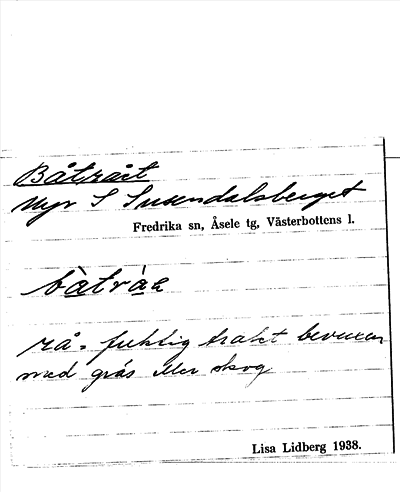 Båtrået
myr S Susendalsberget
Fredrika sn, Åsele tg, Västerbottens l.
rå = fuktig trakt bevuxen
med gräs eller skog
Lisa Lidberg 1938.